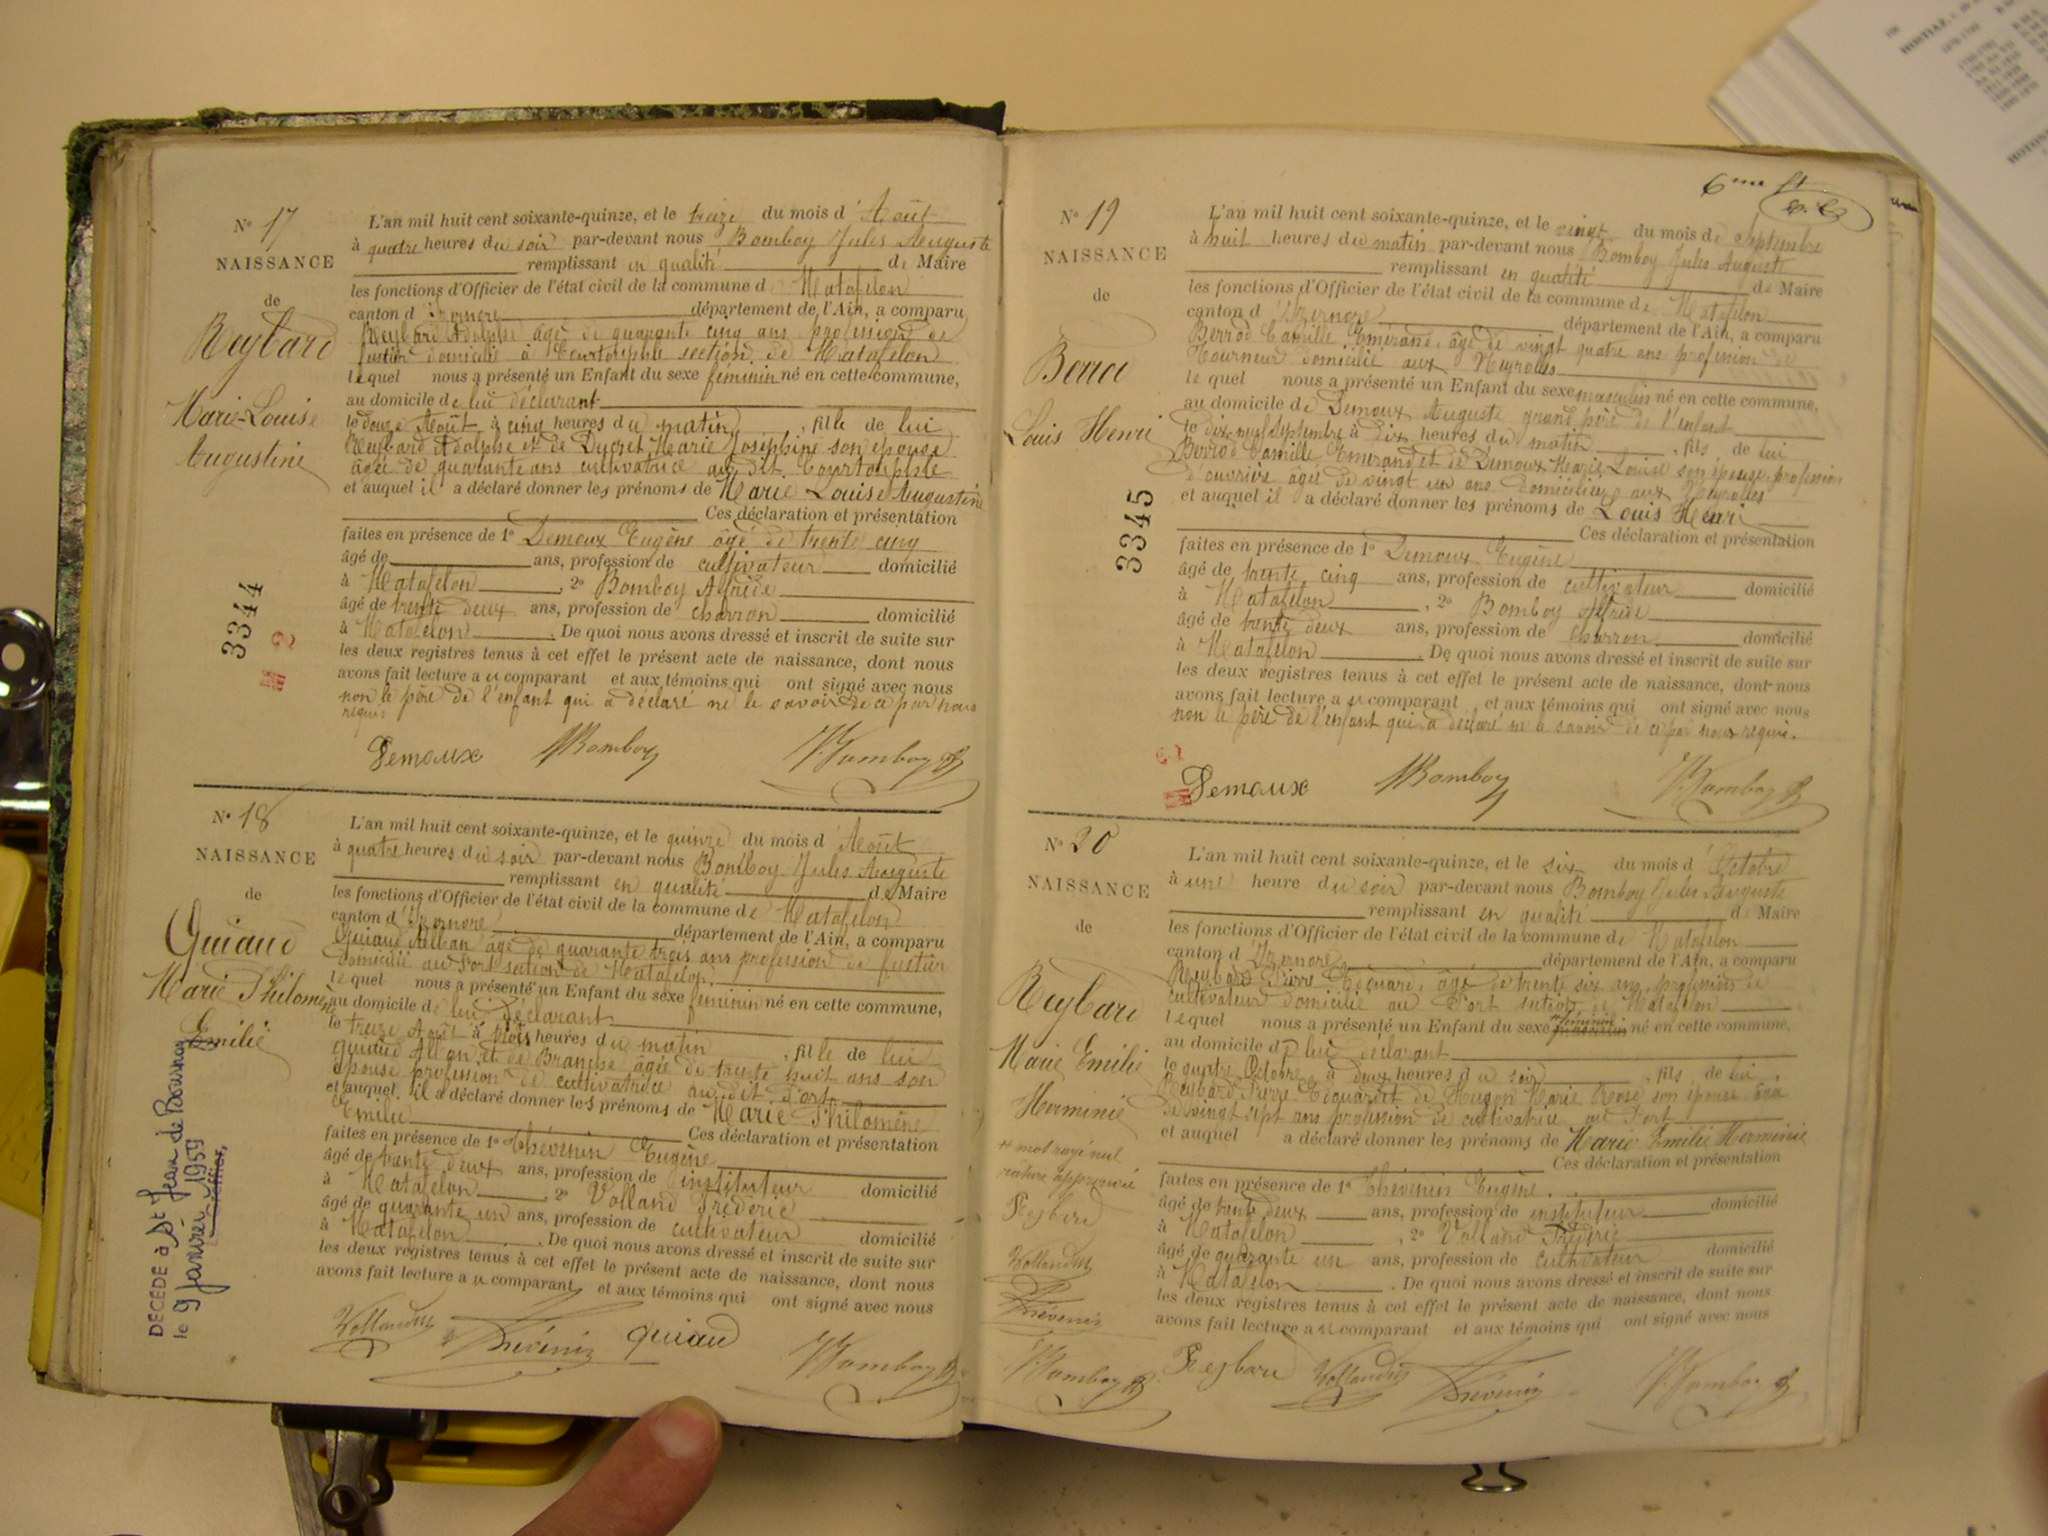 N° 17
NAISSANCE
de
Reybard
Marie-Louise
Augustine
3344
L'an mil huit cent soixante-quinze, et le treize du mois d'Août
à quatre heures du soir par-devant nous Bomboy Jules Auguste
remplissant en qualité de Maire
les fonctions d'Officier de l'état civil de la commune d Matafelon
canton d'Izernore département de l'Ain, a comparu
Reybard Adolphe âgé de quarante cinq ans profession de
fustier domicilié à Courtouphle section de Matafelon
lequel nous a présenté un Enfant du sexe féminin né en cette commune,
au domicile de lui déclarant
le douze Août à cinq heures du matin, fille de lui
Reybard Adolphe et de Ducret Marie Joséphine son épouse
âgée de quarante ans cultivatrice au dit Courtouphle
et auquel il a déclaré donner les prénoms de Marie Louise Augustine
Ces déclaration et présentation
faites en présence de 1° Demoux Eugène âgé de trente cinq
âgé de ans, profession de cultivateur domicilié
à Matafelon, 2° Bomboy Alfrède
âgé de trente deux ans, profession de charron domicilié
à Matafelon. De quoi nous avons dressé et inscrit de suite sur
les deux registres tenus à cet effet le présent acte de naissance, dont nous
avons fait lecture au comparant et aux témoins qui ont signé avec nous
non le père de l'enfant qui a déclaré ne le savoir de ce par nous
requis
Demoux Bomboy J. Bomboy
N° 18
NAISSANCE
de
Guiaud
Marie Philomène
Emilie
DÉCÉDÉ à St Jean de Bournay
le 9 janvier 1959
L'an mil huit cent soixante-quinze, et le quinze du mois d'Août
à quatre heures du soir par-devant nous Bomboy Jules Auguste
remplissant en qualité de Maire
les fonctions d'Officier de l'état civil de la commune de Matafelon
canton d'Izernore département de l'Ain, a comparu
Guiaud âgé de quarante trois ans profession de fustier
domicilié au Port section de Matafelon
lequel nous a présenté un Enfant du sexe féminin né en cette commune,
au domicile de lui déclarant
le treize Août à trois heures du matin, fille de lui
Guiaud et de âgée de trente huit ans son
épouse profession de cultivatrice au dit Port
et auquel il a déclaré donner les prénoms de Marie Philomène
Emilie Ces déclaration et présentation
faites en présence de 1° Thévenin Eugène
âgé de trente deux ans, profession de instituteur domicilié
à Matafelon, 2° Volland Fréderic
âgé de quarante un ans, profession de cultivateur domicilié
à Matafelon. De quoi nous avons dressé et inscrit de suite sur
les deux registres tenus à cet effet le présent acte de naissance, dont nous
avons fait lecture au comparant et aux témoins qui ont signé avec nous
Volland Thévenin Guiaud J. Bomboy
6me ft
N° 19
NAISSANCE
de
Berrod
Louis Henri
3345
L'an mil huit cent soixante-quinze, et le vingt du mois de Septembre
à huit heures du matin par-devant nous Bomboy Jules Auguste
remplissant en qualité de Maire
les fonctions d'Officier de l'état civil de la commune de Matafelon
canton d'Izernore département de l'Ain, a comparu
Berrod Camille Emérand, âgé de vingt quatre ans profession de
Tourneur domicilié aux Neyrolles
lequel nous a présenté un Enfant du sexe masculin né en cette commune,
au domicile de Demoux Auguste grand père de l'enfant
le dix neuf Septembre à dix heures du matin, fils de lui
Berrod Camille Emerand et de Demoux Marie Louise son épouse, profession
d'ouvrière âgée de vingt un ans domiciliée aux Neyrolles
et auquel il a déclaré donner les prénoms de Louis Henri
Ces déclaration et présentation
faites en présence de 1° Demoux Eugène
âgé de trente cinq ans, profession de cultivateur domicilié
à Matafelon, 2° Bomboy Alfrède
âgé de trente deux ans, profession de charron domicilié
à Matafelon. De quoi nous avons dressé et inscrit de suite sur
les deux registres tenus à cet effet le présent acte de naissance, dont nous
avons fait lecture au comparant et aux témoins qui ont signé avec nous
non le père de l'enfant qui a déclaré ne le savoir de ce par nous requis.
Demoux Bomboy J. Bomboy
N° 20
NAISSANCE
de
Reybard
Marie Emilie
Herminie
mot rayé nul
rature approuvée
Reybard
Volland
Thévenin
J. Bomboy
L'an mil huit cent soixante-quinze, et le six du mois d'Octobre
à une heure du soir par-devant nous Bomboy Jules Auguste
remplissant en qualité de Maire
les fonctions d'Officier de l'état civil de la commune de Matafelon
canton d'Izernore département de l'Ain, a comparu
Reybard Pierre âgé de trente six ans, profession de
cultivateur domicilié au Port section de Matafelon
lequel nous a présenté un Enfant du sexe féminin né en cette commune,
au domicile de lui déclarant
le quatre Octobre à deux heures du soir, fils de lui
Reybard Pierre et de Hugon Marie son épouse âgée
de vingt sept ans profession de cultivatrice au Port
et auquel a déclaré donner les prénoms de Marie Emilie Herminie
Ces déclaration et présentation
faites en présence de 1° Thévenin Eugène
âgé de trente deux ans, profession de instituteur domicilié
à Matafelon, 2° Volland Fréderic
âgé de quarante un ans, profession de cultivateur domicilié
à Matafelon. De quoi nous avons dressé et inscrit de suite sur
les deux registres tenus à cet effet le présent acte de naissance, dont nous
avons fait lecture au comparant et aux témoins qui ont signé avec nous
Reybard Volland Thévenin J. Bomboy